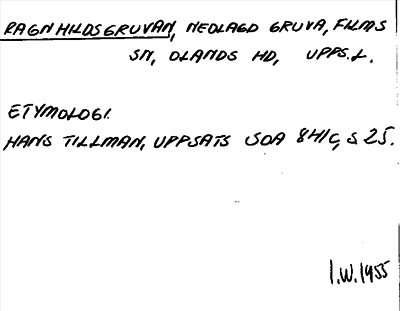 RAGNHILDSGRUVAN, NEDLAGD GRUVA, FILMS
SN, OLANDS HD, UPPS.L.
ETYMOLOGI.
HANS TILLMAN, UPPSATS SOA 8H1C, S 25.
I.W. 1955